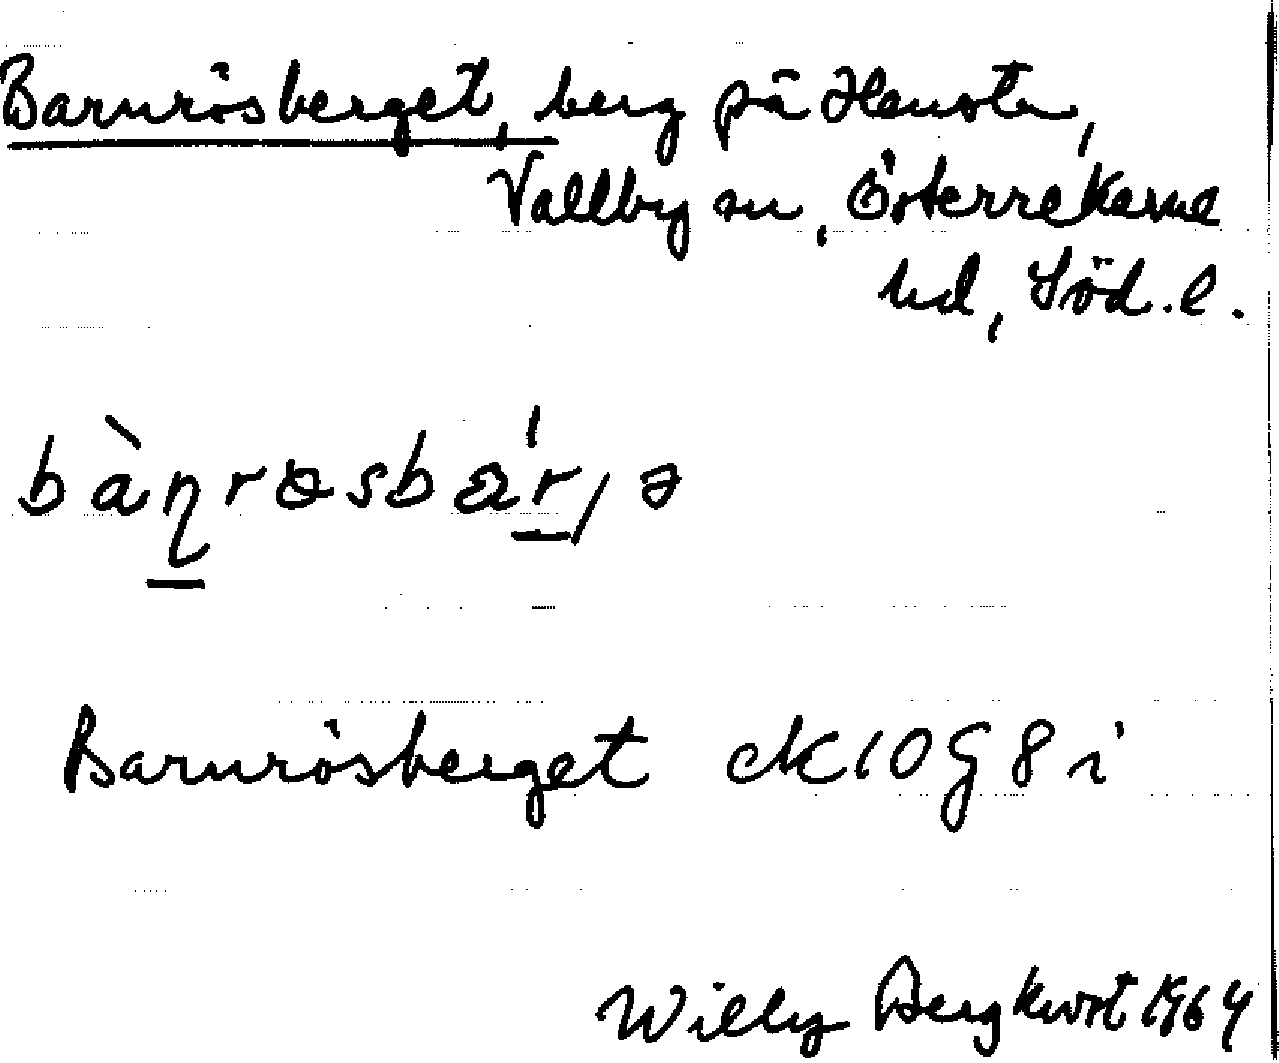 Barnrösberget, berg på Hensta,
Vallby sn, Österrekarne
hd, Söd. l.
bàɳrɵsbær,ə
Barnrösberget ek 10G8i
Willy Bergkvist 1964